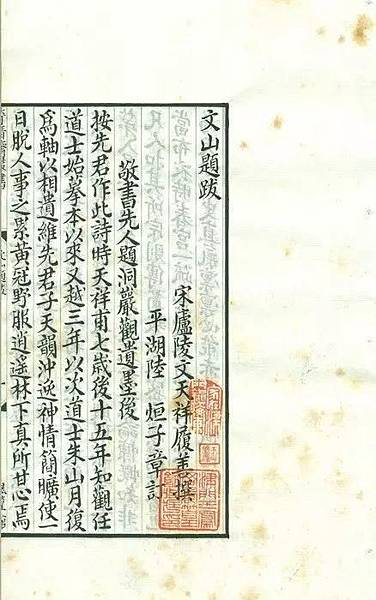 文山題跋
宋廬陵文天祥履善撰
平湖陸烜子章訂
敬書先人題洞巖觀遺墨後
按先君作此詩時天祥甫七歲後十五年知觀任
道士始摹本以來又越三年以次道士朱山月復
爲軸以相遺維先君子天韻沖逈神情簡曠使一
日脫人事之累黃冠野服逍遥林下真所甘心焉